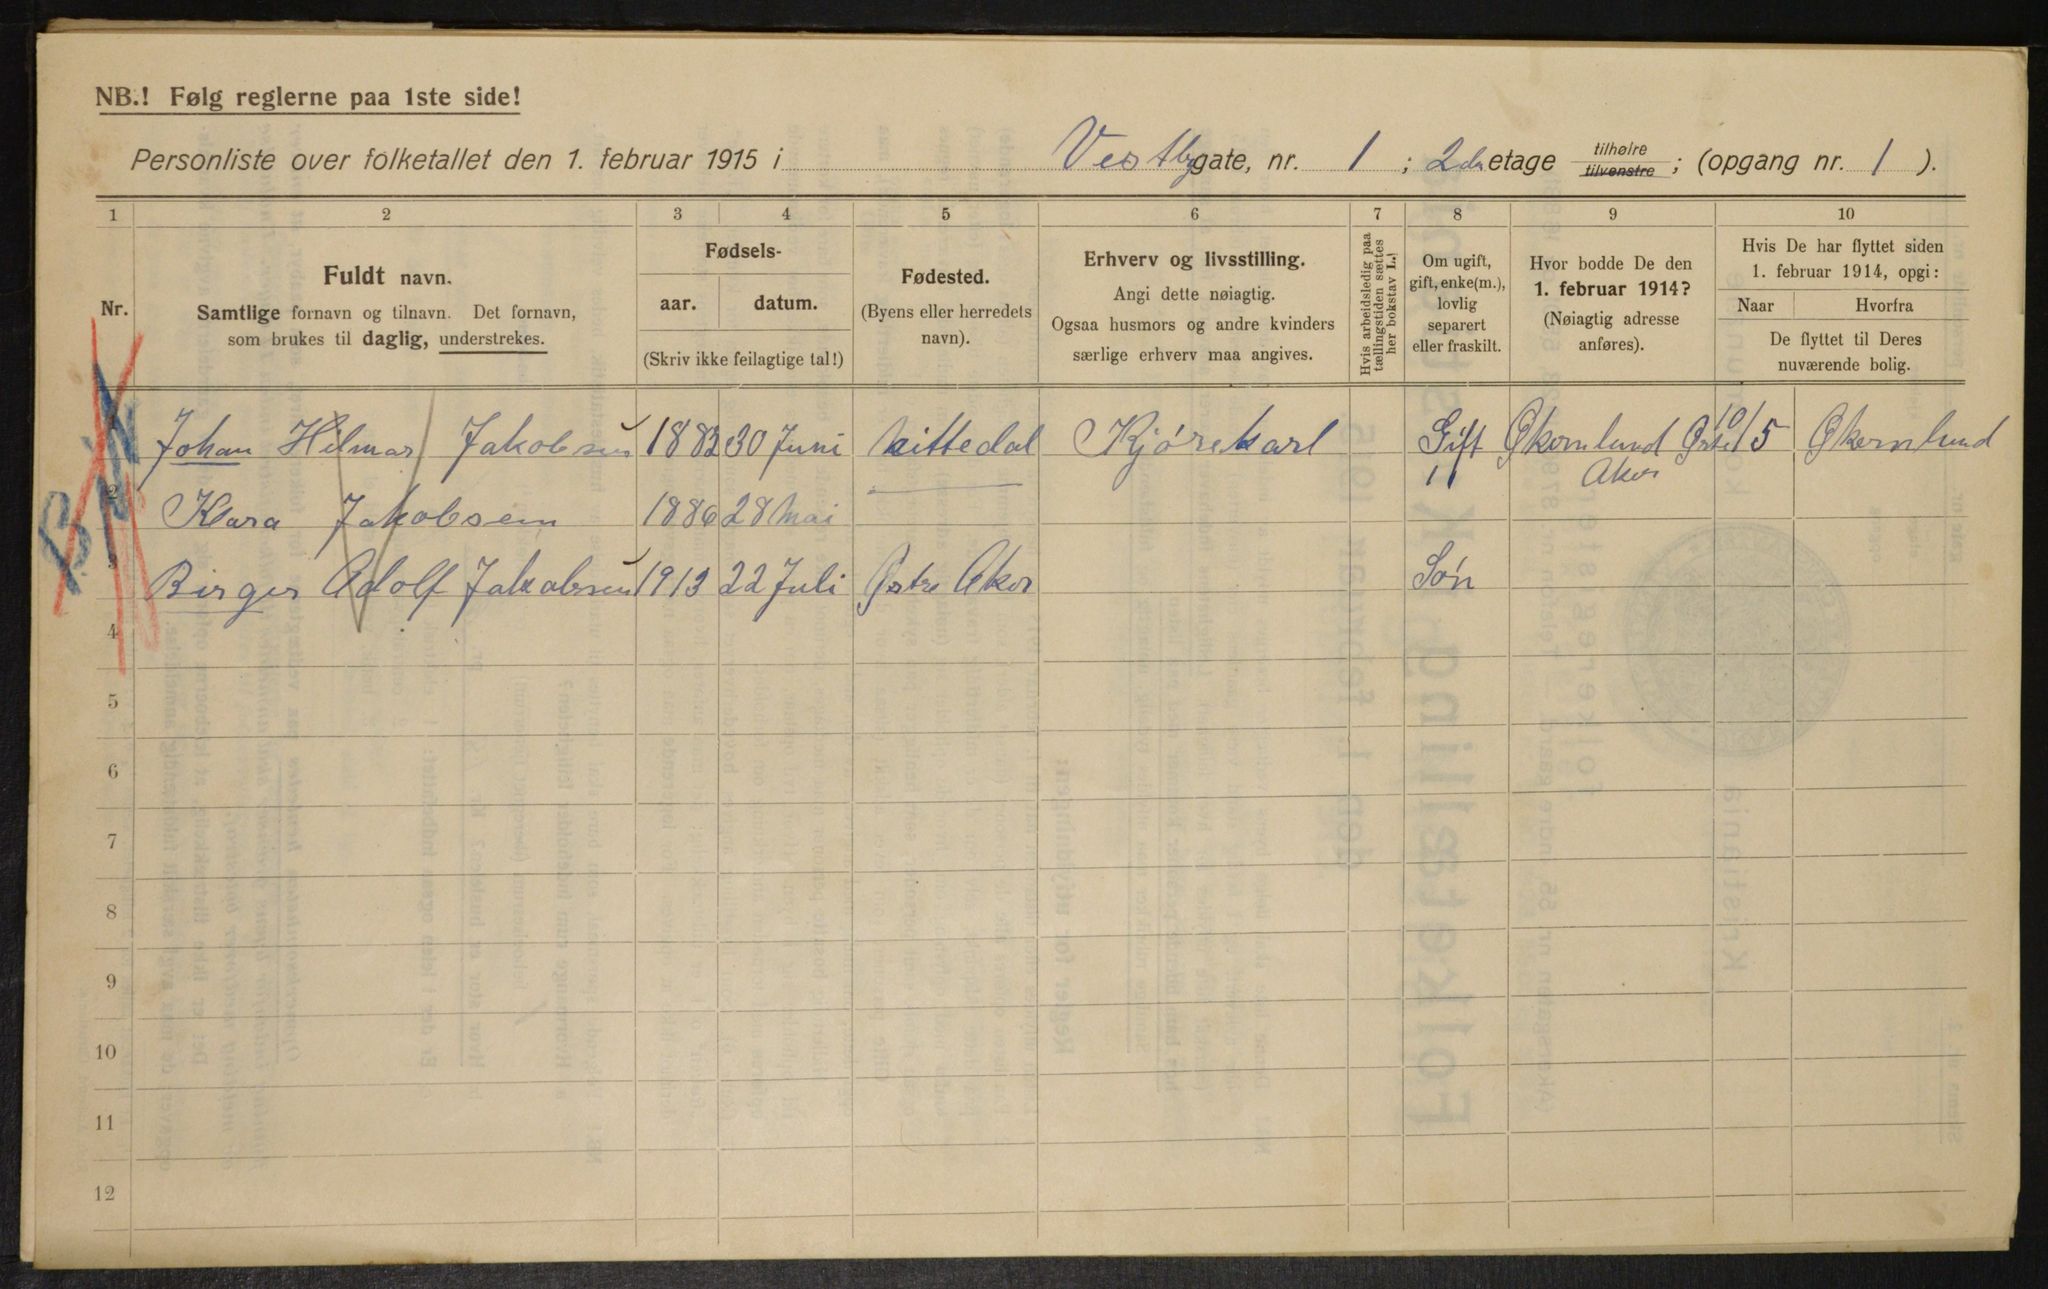 NB.! Følg reglerne paa 1ste side!
Personliste over folketallet den 1. februar 1915 i Vestby gate, nr. 1 ; 2den etage tilhøire tilvenstre ; (opgang nr. 1 ).
1 2 3 4 5 6 7 8 9 10
Nr.
Fuldt navn.
Samtlige fornavn og tilnavn. Det fornavn,
som brukes til daglig, understrekes.
Fødsels-
aar. datum.
(Skriv ikke feilagtige tal!)
Fødested.
(Byens eller herredets
navn).
Erhverv og livsstilling.
Angi dette nøiagtig.
Ogsaa husmors og andre kvinders
særlige erhverv maa angives.
Hvis arbeidsledig paa
tællingstiden sættes
her bokstav L.!
Om ugift,
gift, enke(m.),
lovlig
separert
eller fraskilt.
Hvor bodde De den
1. februar 1914?
(Nøiagtig adresse
anføres).
Hvis De har flyttet siden
1. februar 1914, opgi:
Naar Hvorfra
De flyttet til Deres
nuværende bolig.
Johan Hilmar Jakobsen 1883 30 Juni Nittedal Kjørekarl Gift Økernlund Østre Aker Økernlund
2 Klara Jakobsen 1886 28 Mai "
3 Birger Adolf Jakobsen 1913 22 Juli Østre Aker Søn
4
5
6
7
8
9
10
11
12